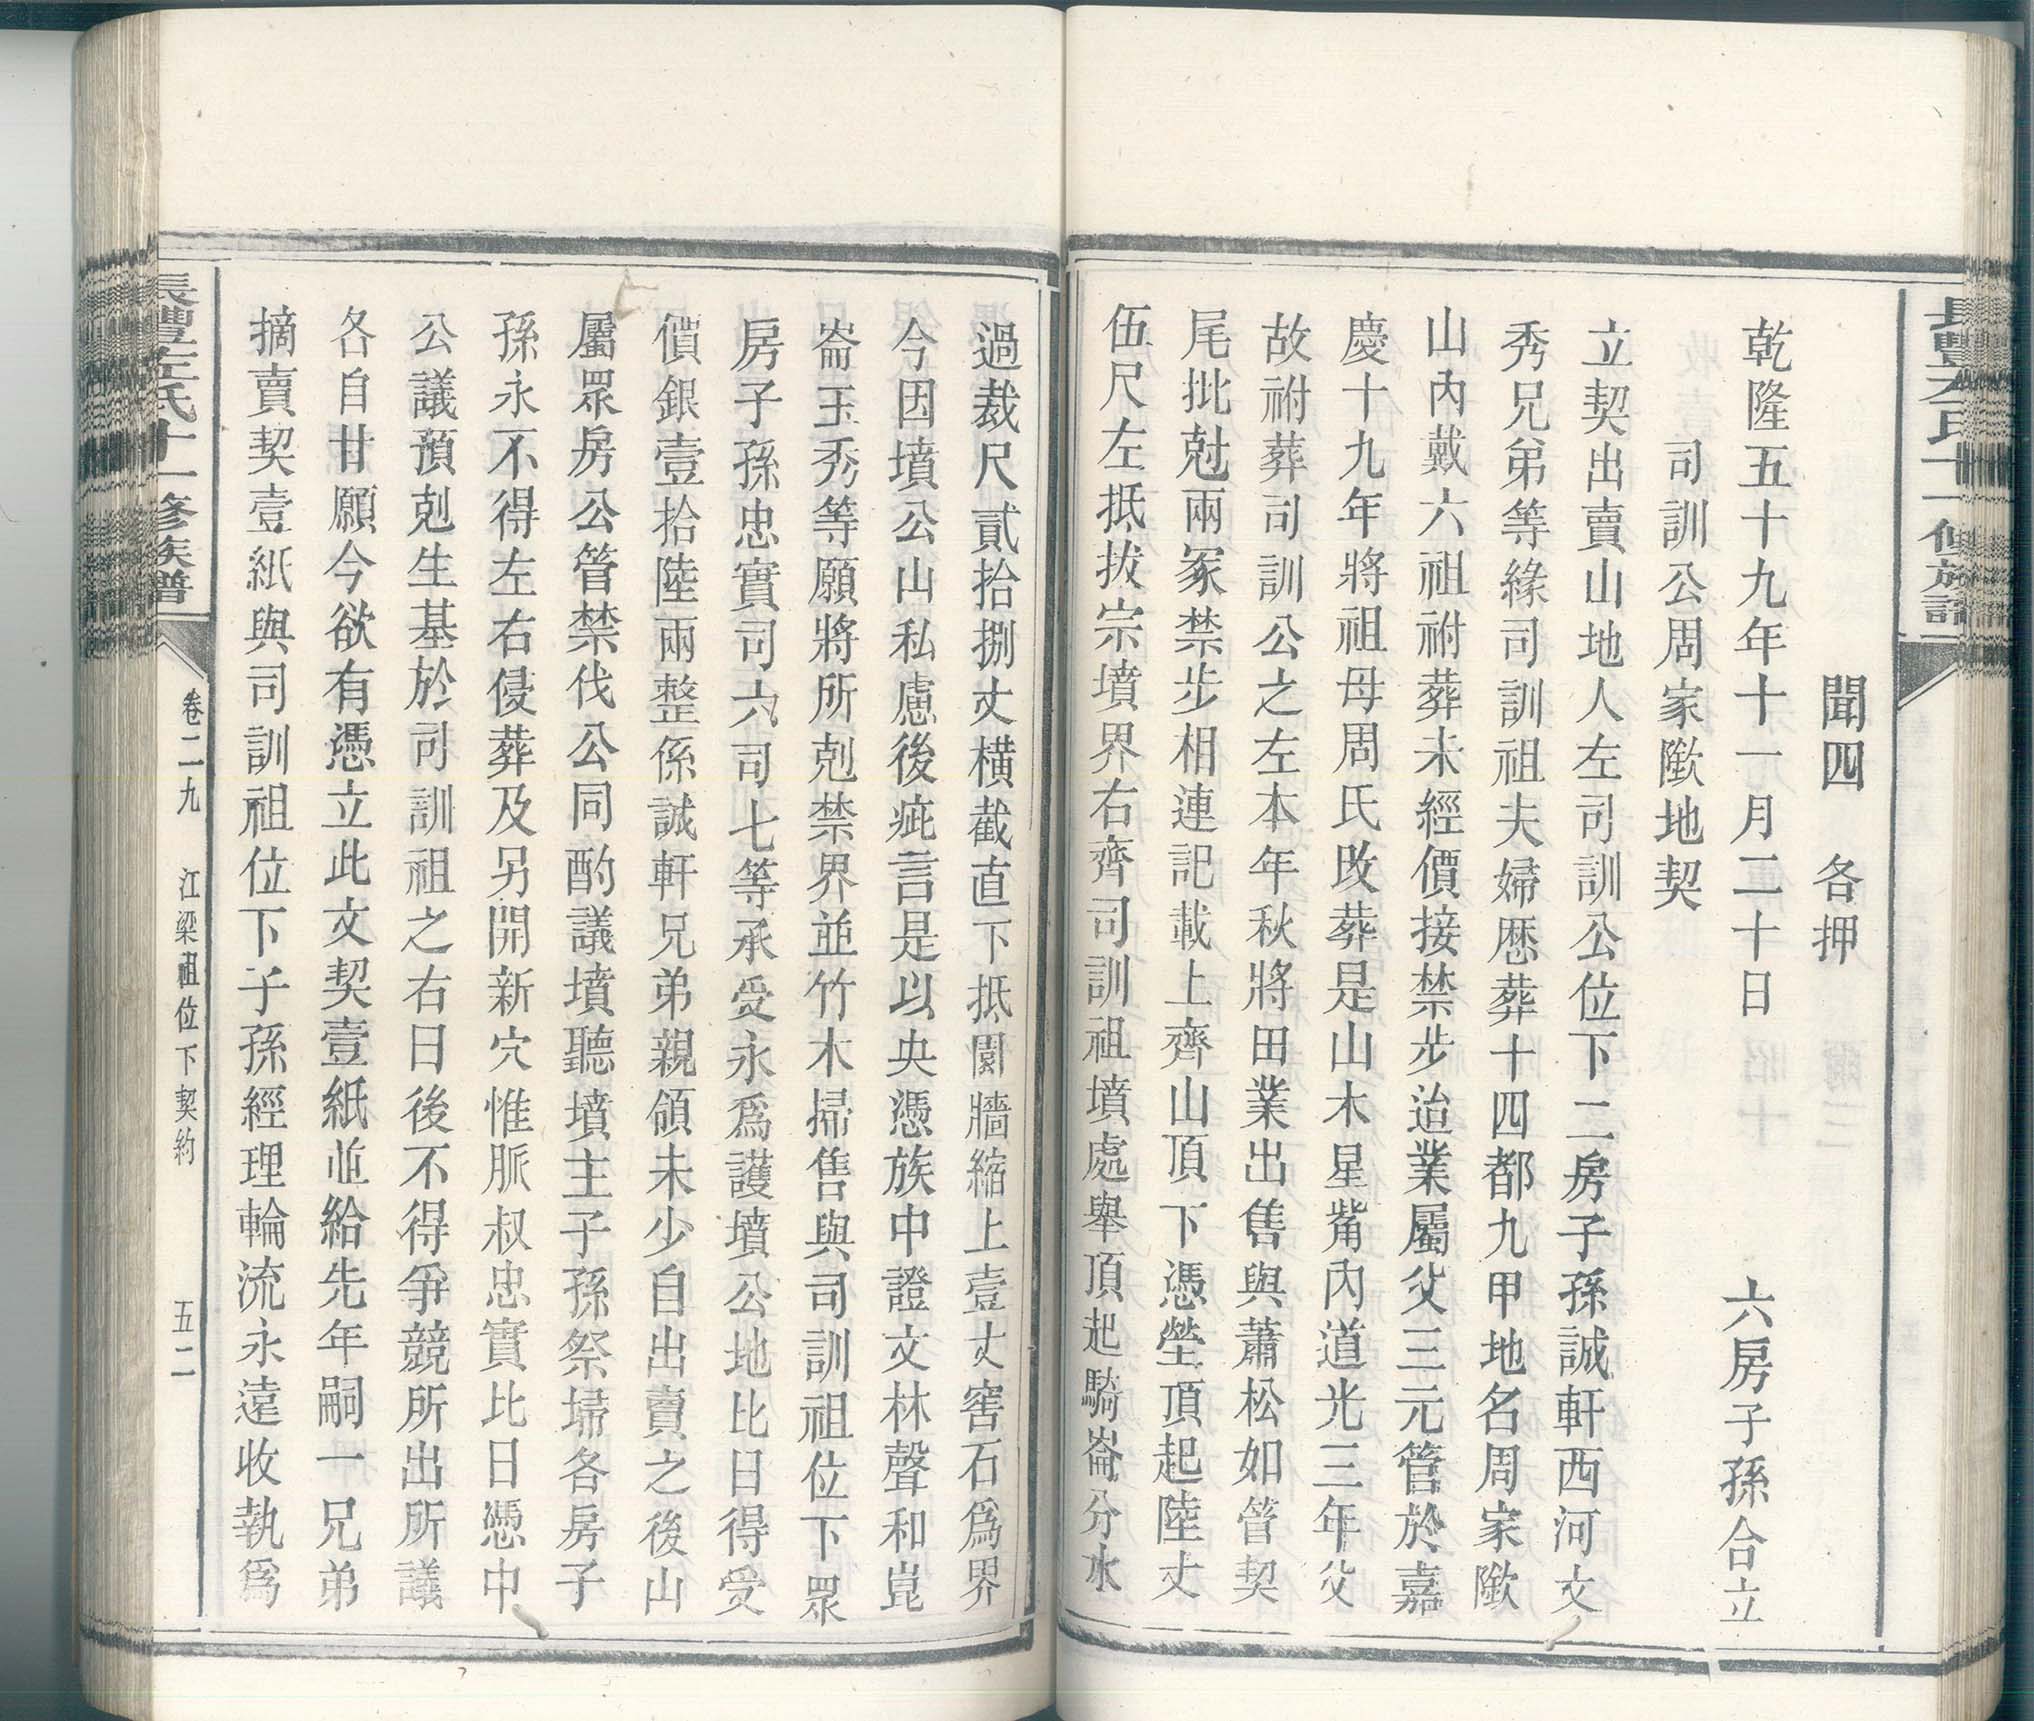 長豐左氏十一修族譜
聞四　各押
乾隆五十九年十一月二十日　六房子孫合立
司訓公周家隞地契
立契出賣山地人左司訓公位下二房子孫誠軒西河文
秀兄弟等緣司訓祖夫婦歷葬十四都九甲地名周家隞
山內戴六祖祔葬未經價接禁步迨業屬父三元管於嘉
慶十九年將祖母周氏改葬是山木星觜內道光三年父
故祔葬司訓公之左本年秋將田業出售與蕭松如管契
尾批尅兩冢禁步相連記載上齊山頂下憑塋頂起陸丈
伍尺左抵拔宗墳界右齊司訓祖墳處舉頂起騎崙分水
過裁尺貳拾捌丈橫截直下抵園牆縮上壹丈窖石爲界
今因墳公山私慮後疵言是以央憑族中證文林聲和崑
崙玉秀等願將所剋禁界並竹木掃售與司訓祖位下眾
房子孫忠實司六司七等承受永爲護墳公地比日得受
價銀壹拾陸兩整係誠軒兄弟親領未少自出賣之後山
屬眾房公管禁伐公同酌議墳聽墳主子孫祭掃各房子
孫永不得左右侵葬及另開新穴惟脈叔忠實比日憑中
公議預剋生基於司訓祖之右日後不得爭競所出所議
各自甘願今欲有憑立此文契壹紙並給先年嗣一兄弟
摘賣契壹紙與司訓祖位下子孫經理輪流永遠收執爲
長豐左氏十一修族譜
卷二九　江梁祖位下契約　五二